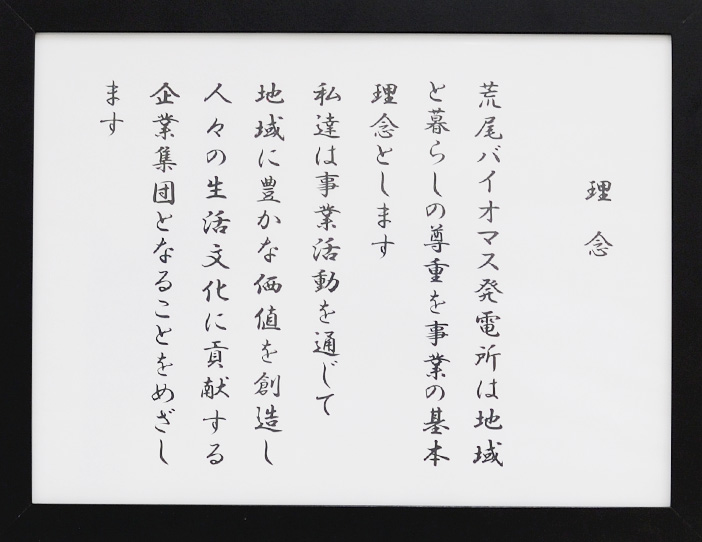 理念
荒尾バイオマス発電所は地域
と暮らしの尊重を事業の基本
理念とします
私達は事業活動を通じて
地域に豊かな価値を創造し
人々の生活文化に貢献する
企業集団となることをめざし
ます